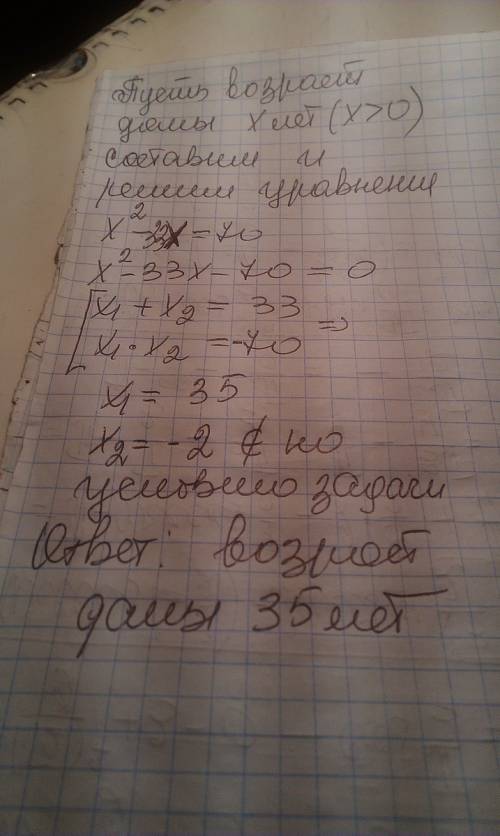 Пусть возраст
дамы x лет (x>0)
составим и
решим уравнение
x²-33x=70
x²-33x-70=0
[x₁+x₂=33
x₁·x₂=-70 =>
x₁=35
x₂=-2 ∉ по
условию задачи
Ответ: возраст
дамы 35 лет